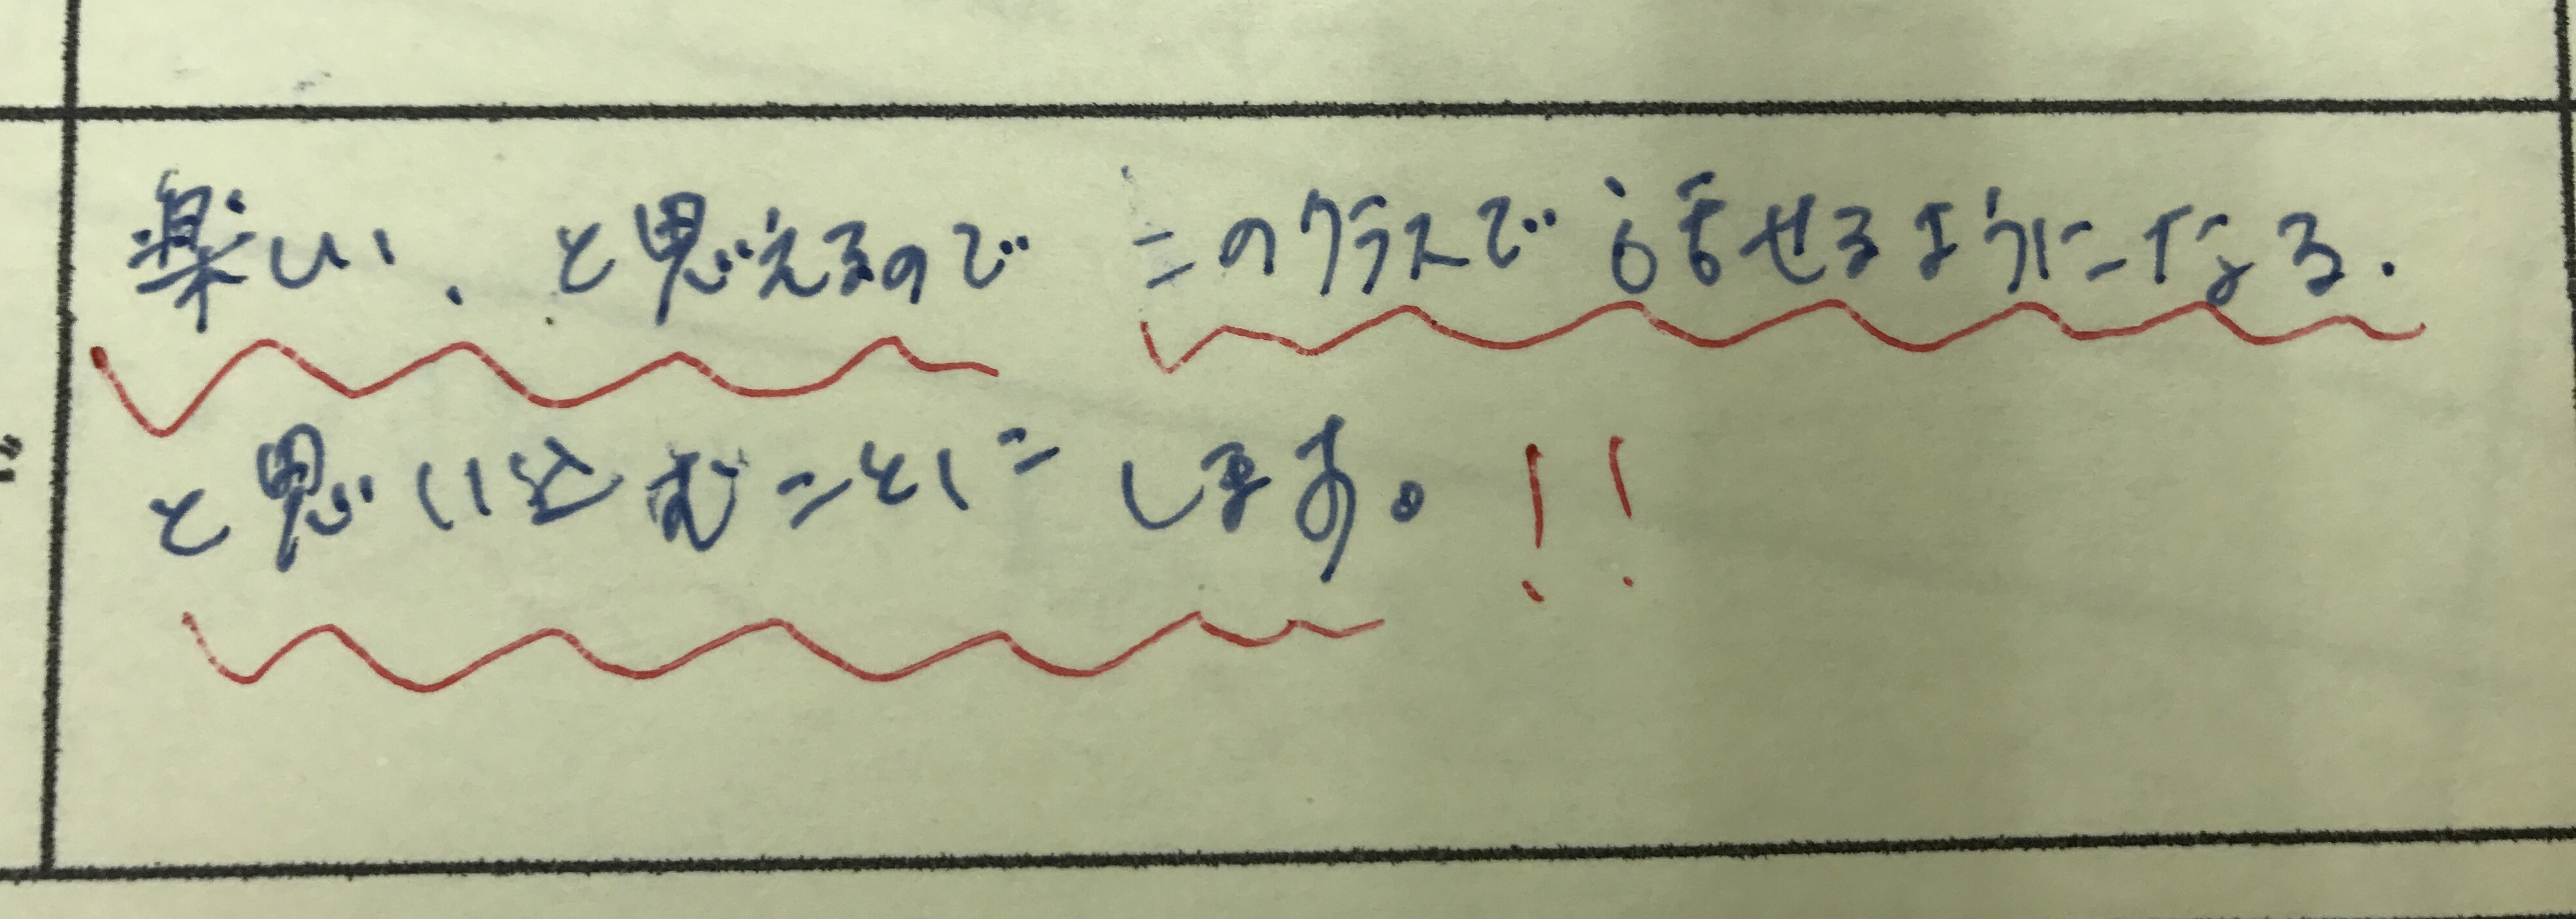 楽しい、と思えるので このクラスで話せるようになる.
と思い込むことにします。!!